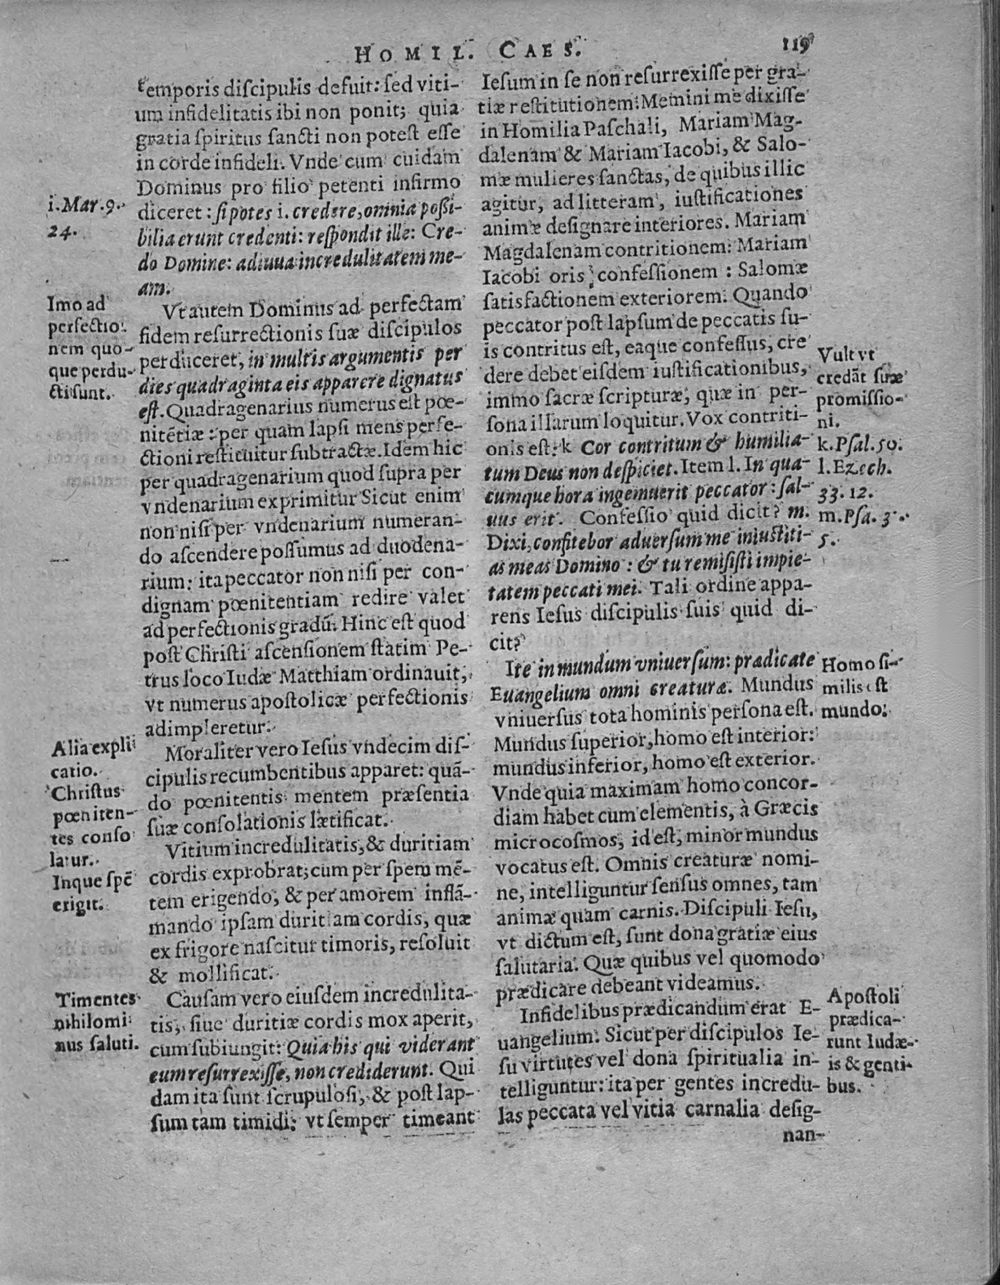 HOMIL. CAES. 119
temporis discipulis defuit: sed viti-
um infidelitatis ibi non ponit; quia
gratia spiritus sancti non potest esse
in corde infideli. Vnde cum cuidam
Dominus pro filio petenti infirmo
diceret: si potes i. credere, omnia possi-
bilia erunt credenti: respondit ille: Cre-
do Domine: adiuua incredulitatem me-
am.
Vt autem Dominus ad perfectam
fidem resurrectionis suæ discipulos
perduceret, in multis argumentis per
dies quadraginta eis apparere dignatus
est. Quadragenarius numerus est pœ-
nitẽtiæ: per quam lapsi mens perfe-
ctioni restituitur subtractæ. Idem hic
per quadragenarium quod supra per
vndenarium exprimitur Sicut enim
non nisi per vndenarium numeran-
do ascendere possumus ad duodena-
rium: ita peccator non nisi per con-
dignam pœnitentiam redire valet
ad perfectionis gradũ. Hinc est quod
post Christi ascensionem statim Pe-
trus loco Iudæ Matthiam ordinauit,
vt numerus apostolicæ perfectionis
adimpleretur.
Moraliter vero Iesus vndecim dis-
cipulis recumbentibus apparet: quã-
do pœnitentis mentem præsentia
suæ consolationis lætificat.
Vitium incredulitatis, & duritiam
cordis exprobrat; cum per spem mẽ-
tem erigendo, & per amorem inflã-
mando ipsam duritiam cordis, quæ
ex frigore nascitur timoris, resoluit
& mollificat.
Causam vero eiusdem incredulita-
tis, siue duritiæ cordis mox aperit,
cum subiungit: Quia his qui viderant
eum resurrexisse, non crediderunt. Qui
dam ita sunt scrupulosi, & post lap-
sum tàm timidi; vt semper timeant
i. Mar. 9.
24.
Imo ad
perfectio
nem quo-
que perdu-
cti sunt.
Alia expli
catio.
Christus
pœniten-
tes conso
latur.
Inque spẽ
erigit.
Timentes
nihilomi
nus saluti.
Iesum in se non resurrexisse per gra-
tiæ restitutionem: Memini me dixisse
in Homilia Paschali, Mariam Mag-
dalenam & Mariam Iacobi, & Salo-
mæ mulieres sanctas, de quibus illic
agitur, ad litteram, iustificationes
animæ designare interiores. Mariam
Magdalenam contritionem: Mariam
Iacobi oris confessionem: Salomæ
satisfactionem exteriorem. Quando
peccator post lapsum de peccatis su-
is contritus est, eaque confessus, cre
dere debet eisdem iustificationibus,
immo sacræ scripturæ, quæ in per-
sona illarum loquitur. Vox contriti-
onis est: k Cor contritum & humilia-
tum Deus non despiciet. Item l. In qua-
cumque hora ingemuerit peccator: sal-
uus erit. Confessio quid dicit? m.
Dixi, confitebor aduersum me iniustiti-
as meas Domino: & tu remisisti impie-
tatem peccati mei. Tali ordine appa-
rens Iesus discipulis suis quid di-
cit?
Ite in mundum vniuersum: prædicate
Euangelium omni creaturæ. Mundus
vniuersus tota hominis persona est.
Mundus superior, homo est interior:
mundus inferior, homo est exterior.
Vnde quia maximam homo concor-
diam habet cum elementis, à Græcis
microcosmos, id est, minor mundus
vocatus est. Omnis creaturæ nomi-
ne, intelliguntur sensus omnes, tam
animæ quam carnis. Discipuli Iesu,
vt dictum est, sunt dona gratiæ eius
salutaria. Quæ quibus vel quomodo
prædicare debeant videamus.
Infidelibus prædicandum erat E-
uangelium. Sicut per discipulos Ie-
su virtutes vel dona spiritualia in-
telliguntur: ita per gentes incredu-
las peccata vel vitia carnalia desig-
nan-
Vult vt
credãt suæ
promissio-
ni.
k. Psal. 50.
l. Ezech.
33. 12.
m. Psa. 3.
5.
Homo si-
milis est
mundo.
Apostoli
prædica-
runt Iudæ-
is & genti-
bus.